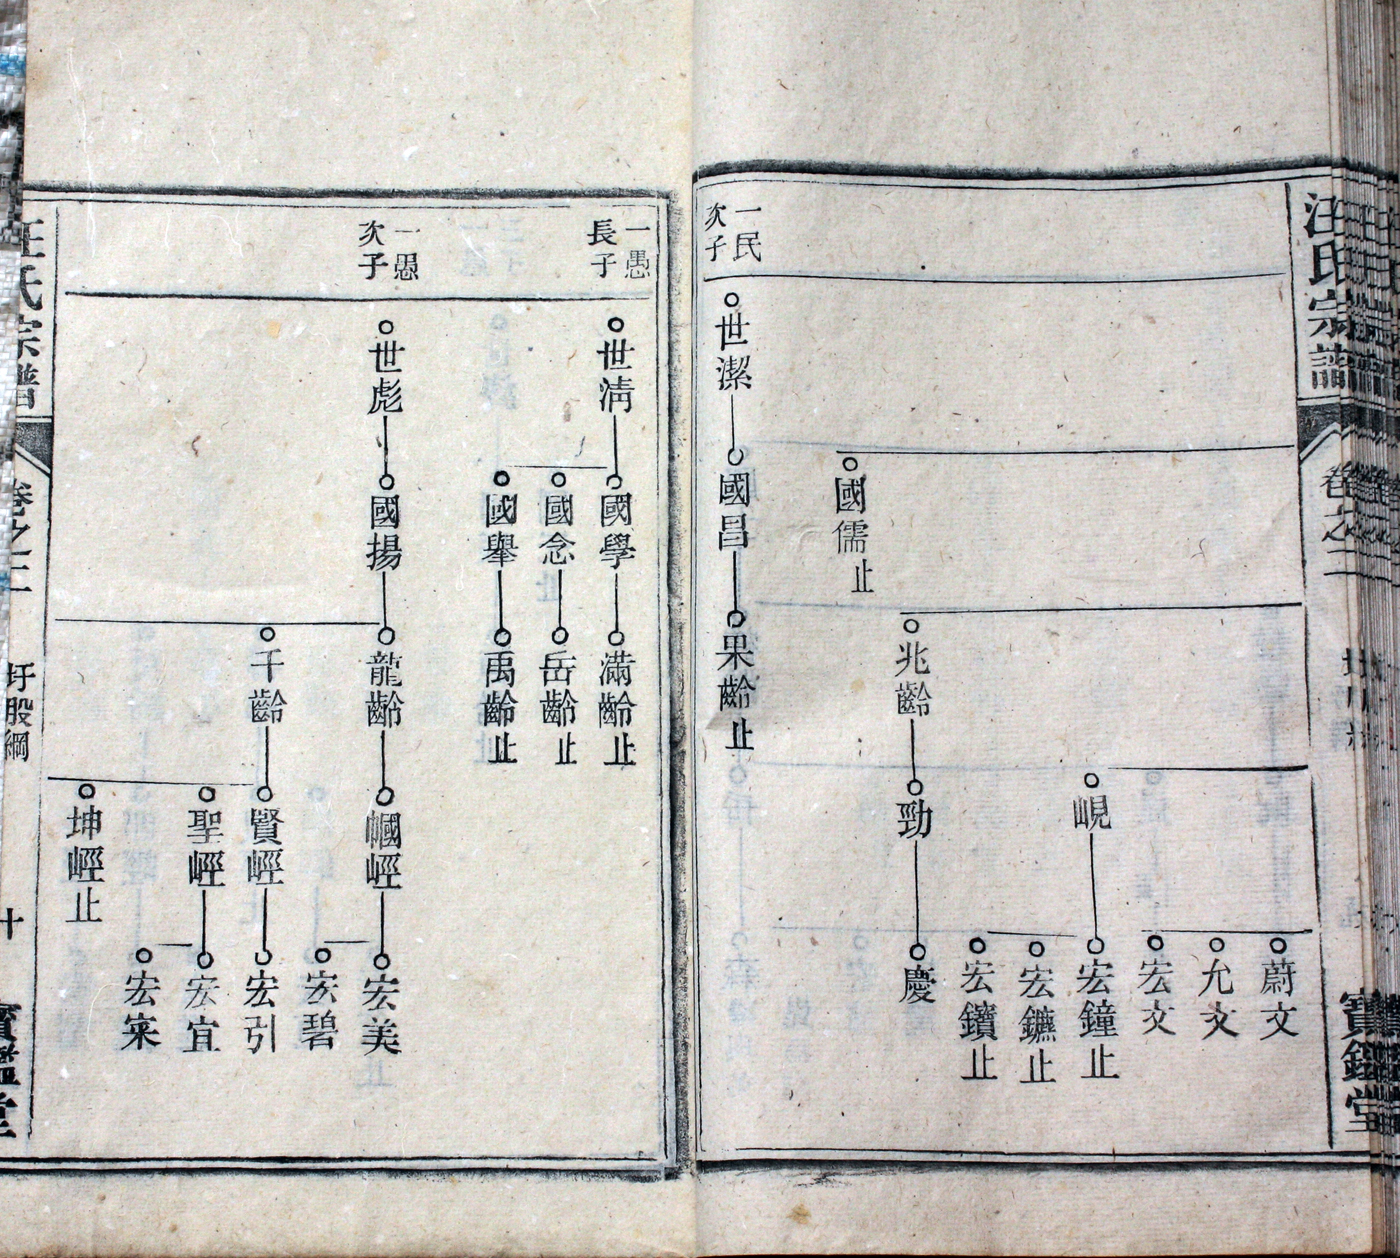 汪氏宗譜
卷之二
寶鑑堂
蔚文
允文
宏文
峴
宏鐘止
宏鑣止
宏鑽止
兆齡
勁
慶
國儒止
一民
次子
世潔
國昌
果齡止
一愚
長子
世清
國學
滿齡止
國念
岳齡止
國舉
禹齡止
一愚
次子
世彪
國揚
龍齡
崓峌
宏美
宏碧
千齡
賢峌
宏引
聖峌
宏宜
宏寀
坤峌止
汪氏宗譜
卷之二
圩股綱
十
寶鑑堂